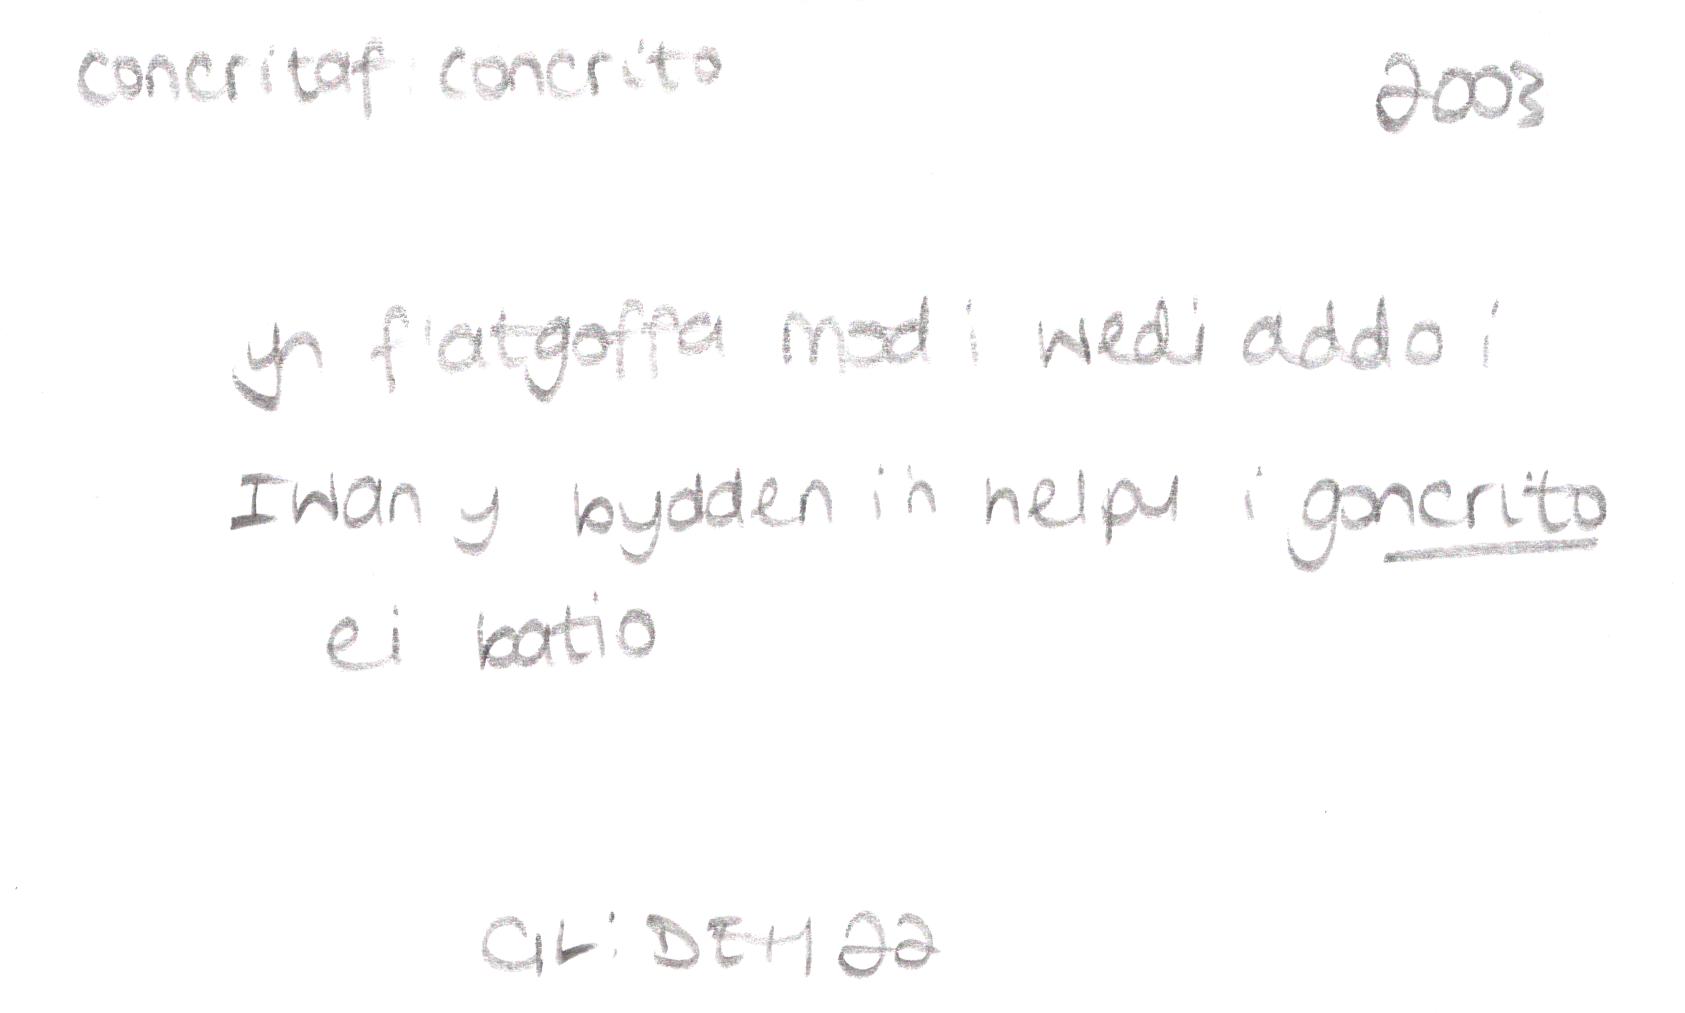 concritaf: concrito 2003
yn f'atgoffa mod i wedi addo i
Iwan y bydden i'n helpu i goncrito
ei batio
GL: DEH 22